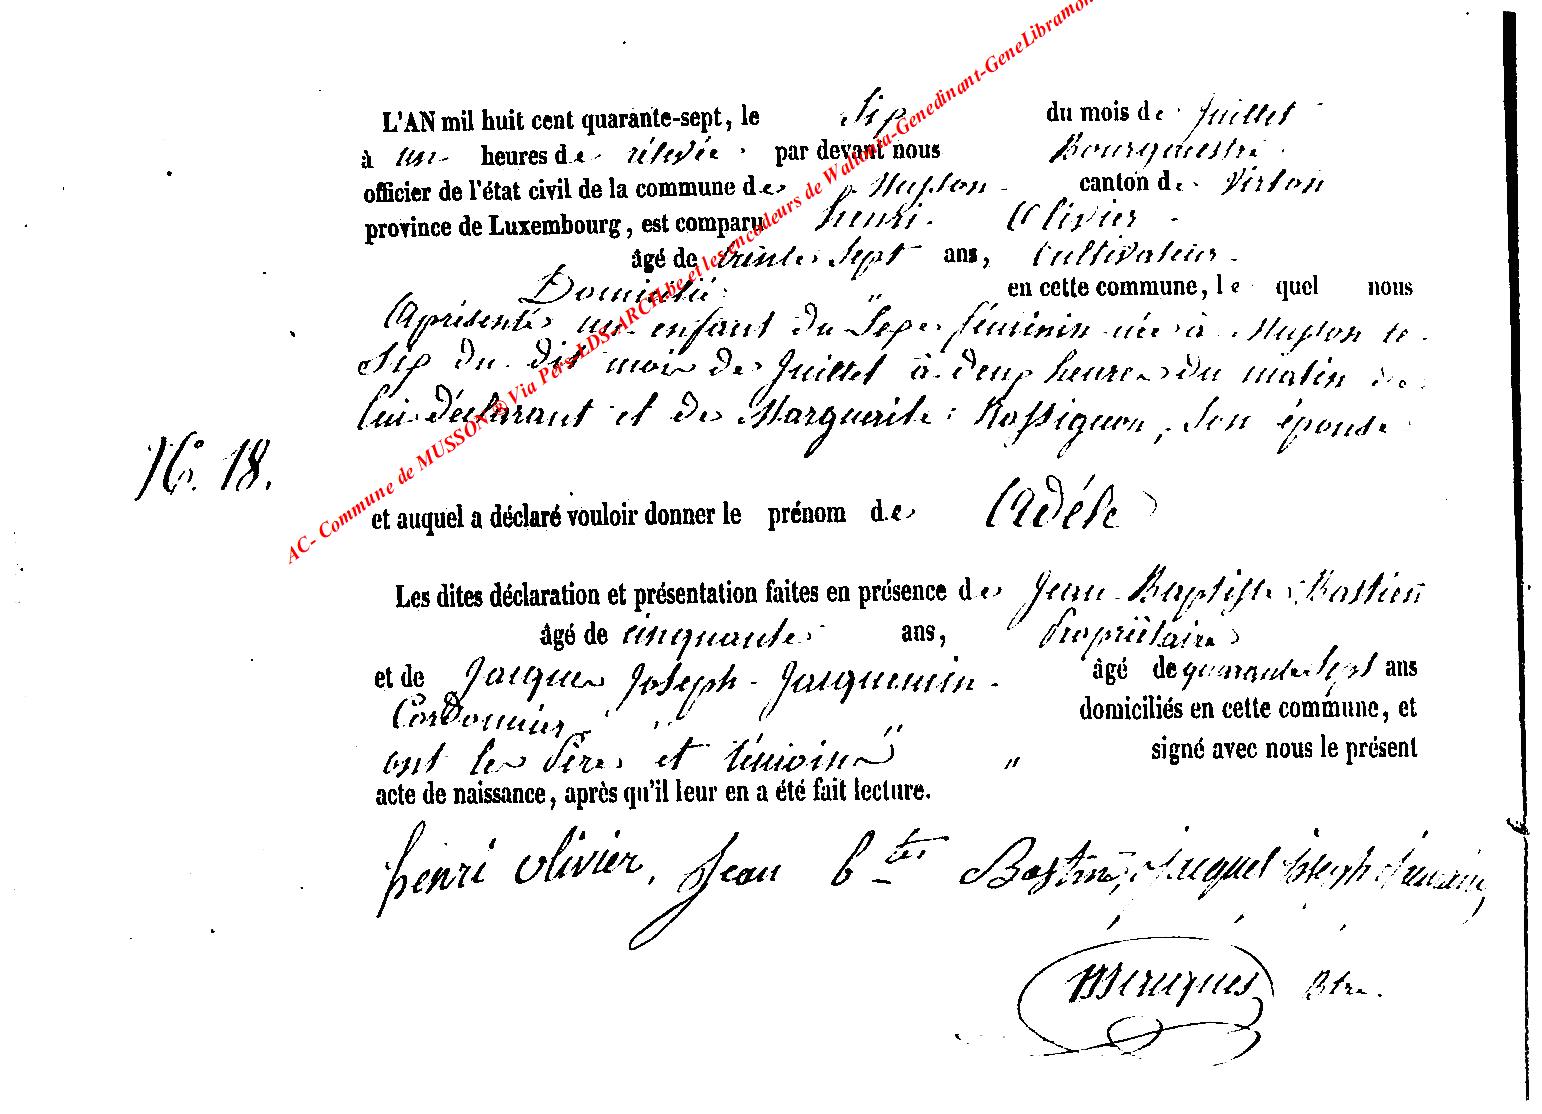 L'AN mil huit cent quarante-sept, le Six du mois de Juillet
à une heures de rélevée par devant nous Bourguestre
officier de l'état civil de la commune de Musson canton de Virton
province de Luxembourg, est comparu henri Olivier
âgé de trente Sept ans, Cultivateur
Domicilié en cette commune, le quel nous
Aprésenté un enfant du Sexe féminin née à Musson le
Six du dit mois de Juillet à deux heures du matin de
lui déclarant et de Marguerite Rossignon, Son épouse
N° 18.
et auquel a déclaré vouloir donner le prénom de Adéle
Les dites déclaration et présentation faites en présence de Jean Baptiste Bastien
âgé de cinquante ans, Propriétaire
et de Jacques Joseph Jacquemin âgé de quarante Sept ans
Cordonnier domiciliés en cette commune, et
ont les Père et témoins signé avec nous le présent
acte de naissance, après qu'il leur en a été fait lecture.
henri olivier, Jean btes Bastien, Jacques Joseph
Btre.
AC- Commune de MUSSON ® Via Pers-LDS-ARCH.be et les encodeurs de Wallonia-Genedinant-GeneLibramon